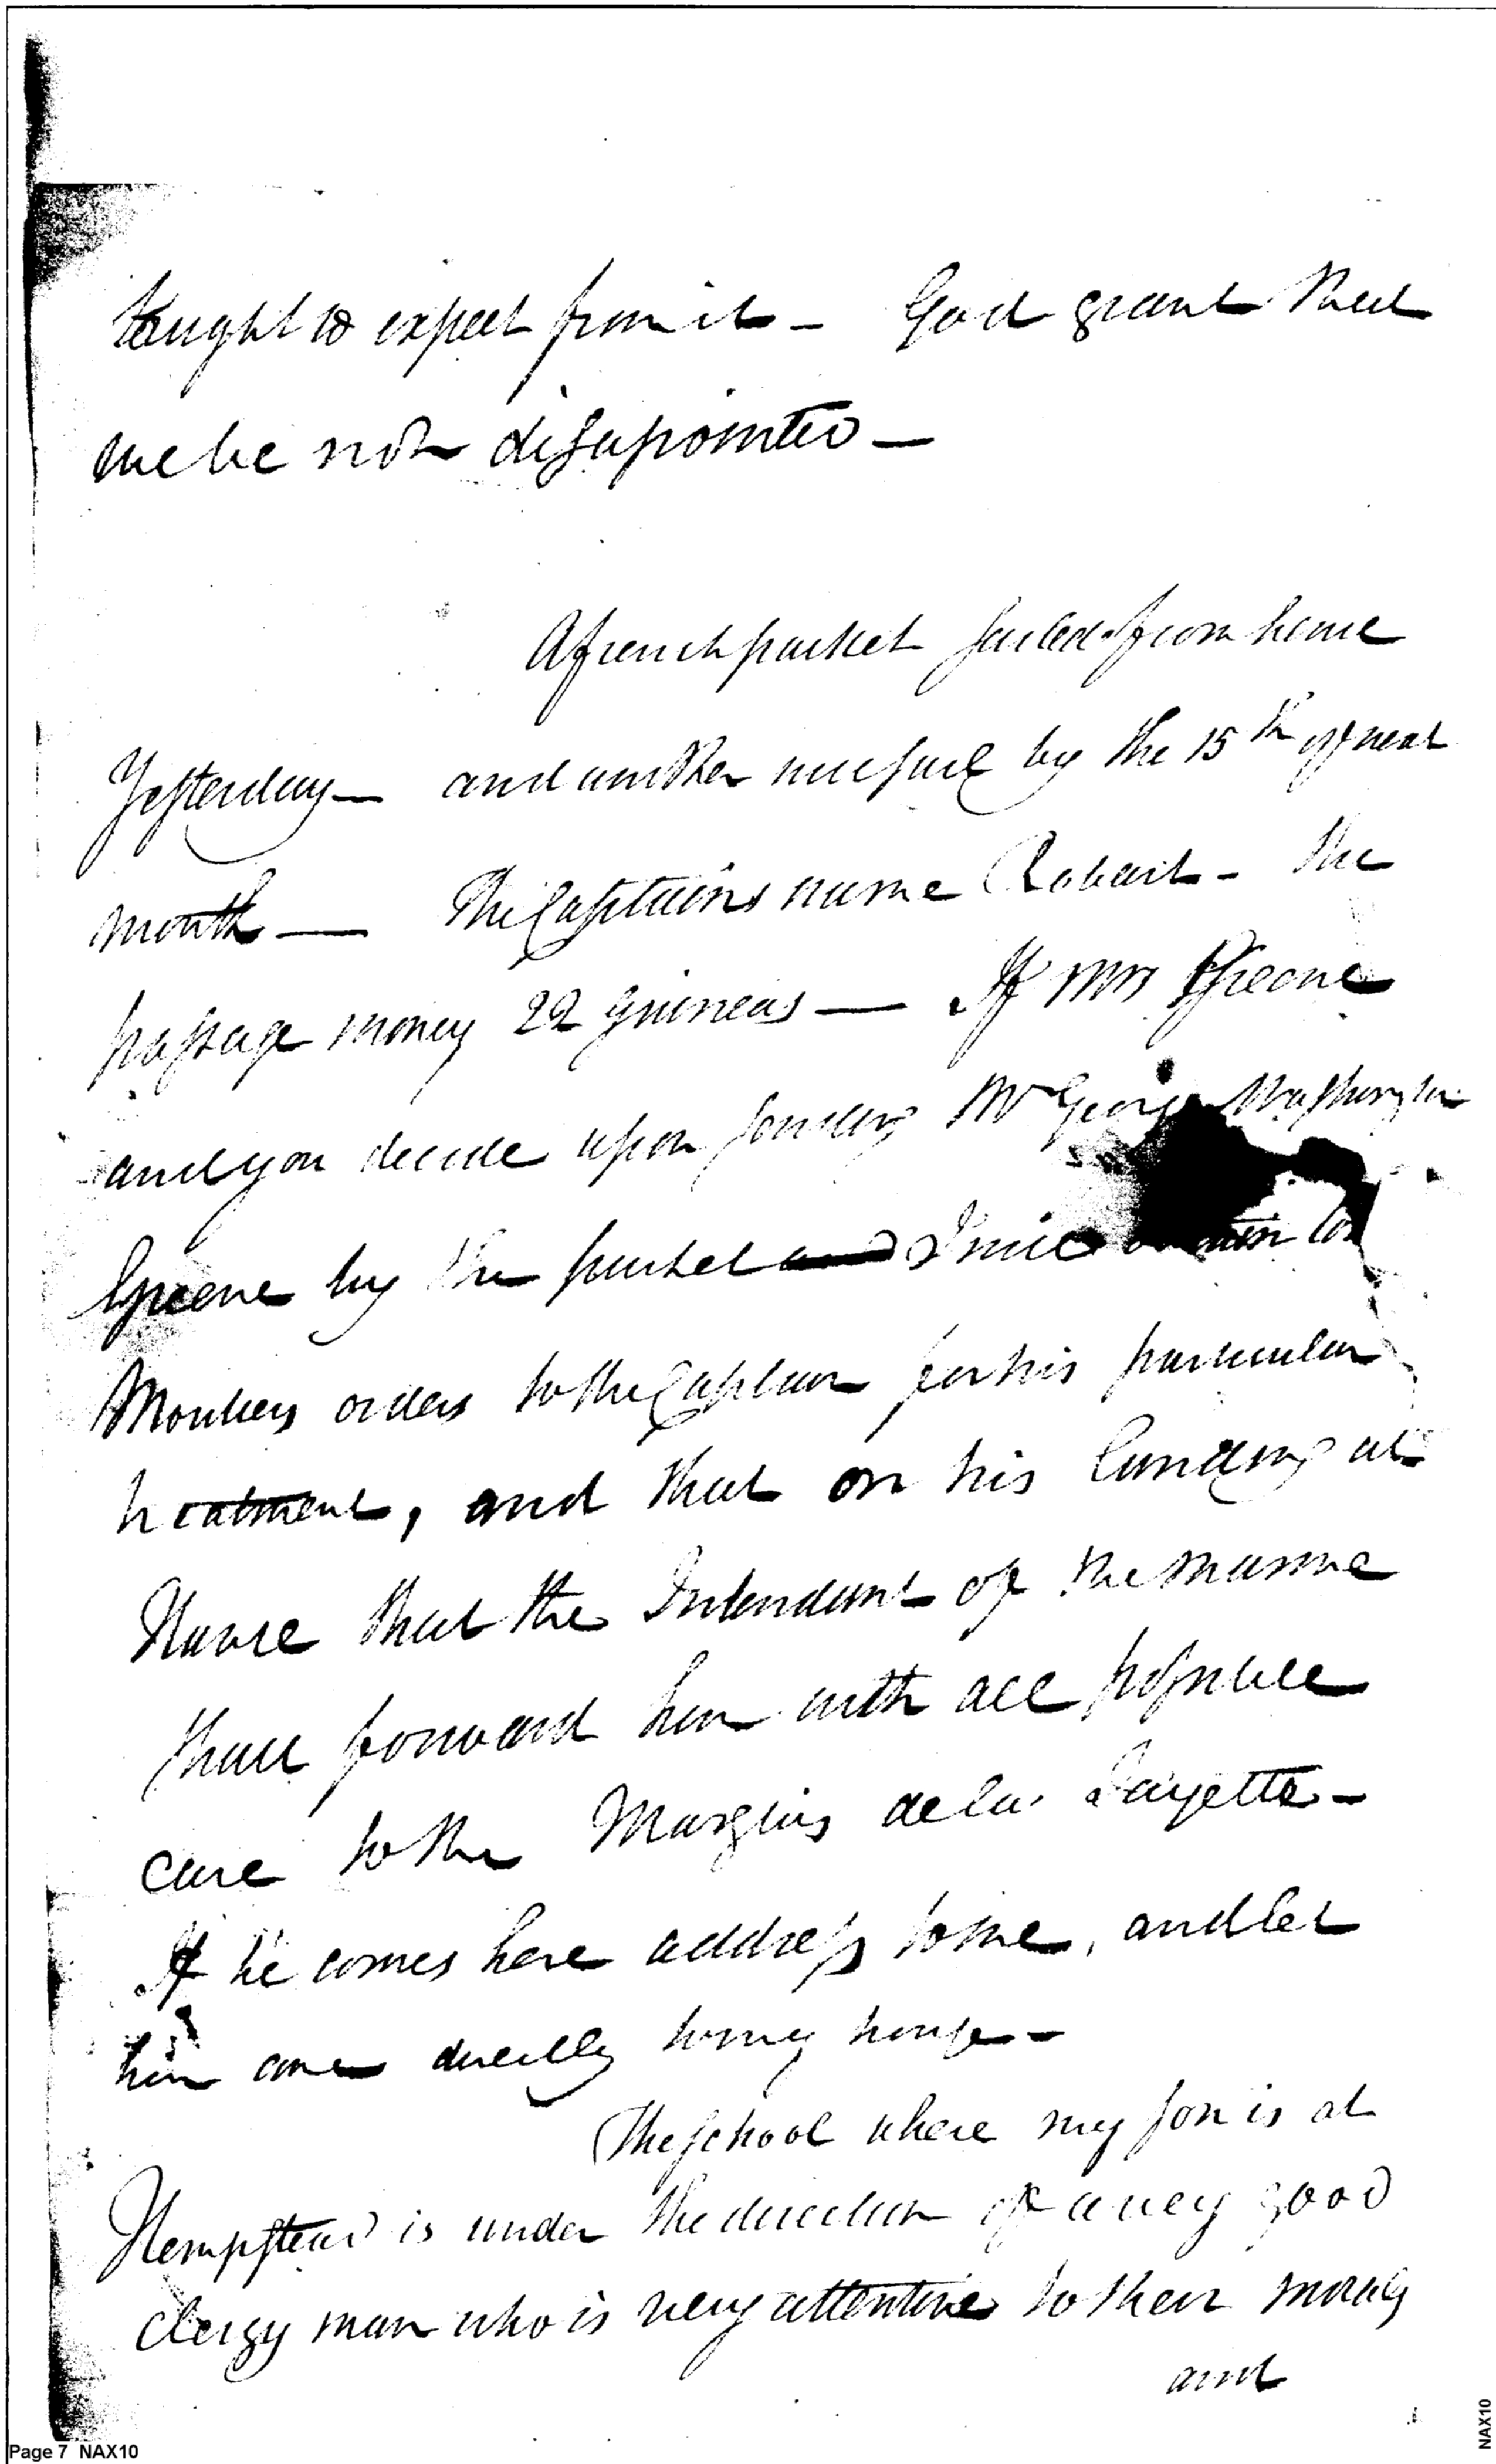 taught to expect from it — God grant that
we be not disapointed —
A french packet sailed from hence
Yesterday — and another will sail by the 15th of next
month — The Captains name Robart — the
passage money 22 Guineas — If Mrs Greene
and you decide upon sending Mr George Washington
Greene by the packet and I will obtain Co
Moutiers orders to the Captain for his particular
treatment, and that on his landing at
Havre that the Intendant of the marine
shall forward him with all possible
care to the Marquis de la Fayette —
If he comes here address to me, and let
him come directly to my house —
The school where my son is at
Hempstead is under the direction of a very good
clergy man who is very attentive to their morals
and
Page 7 NAX10
NAX10